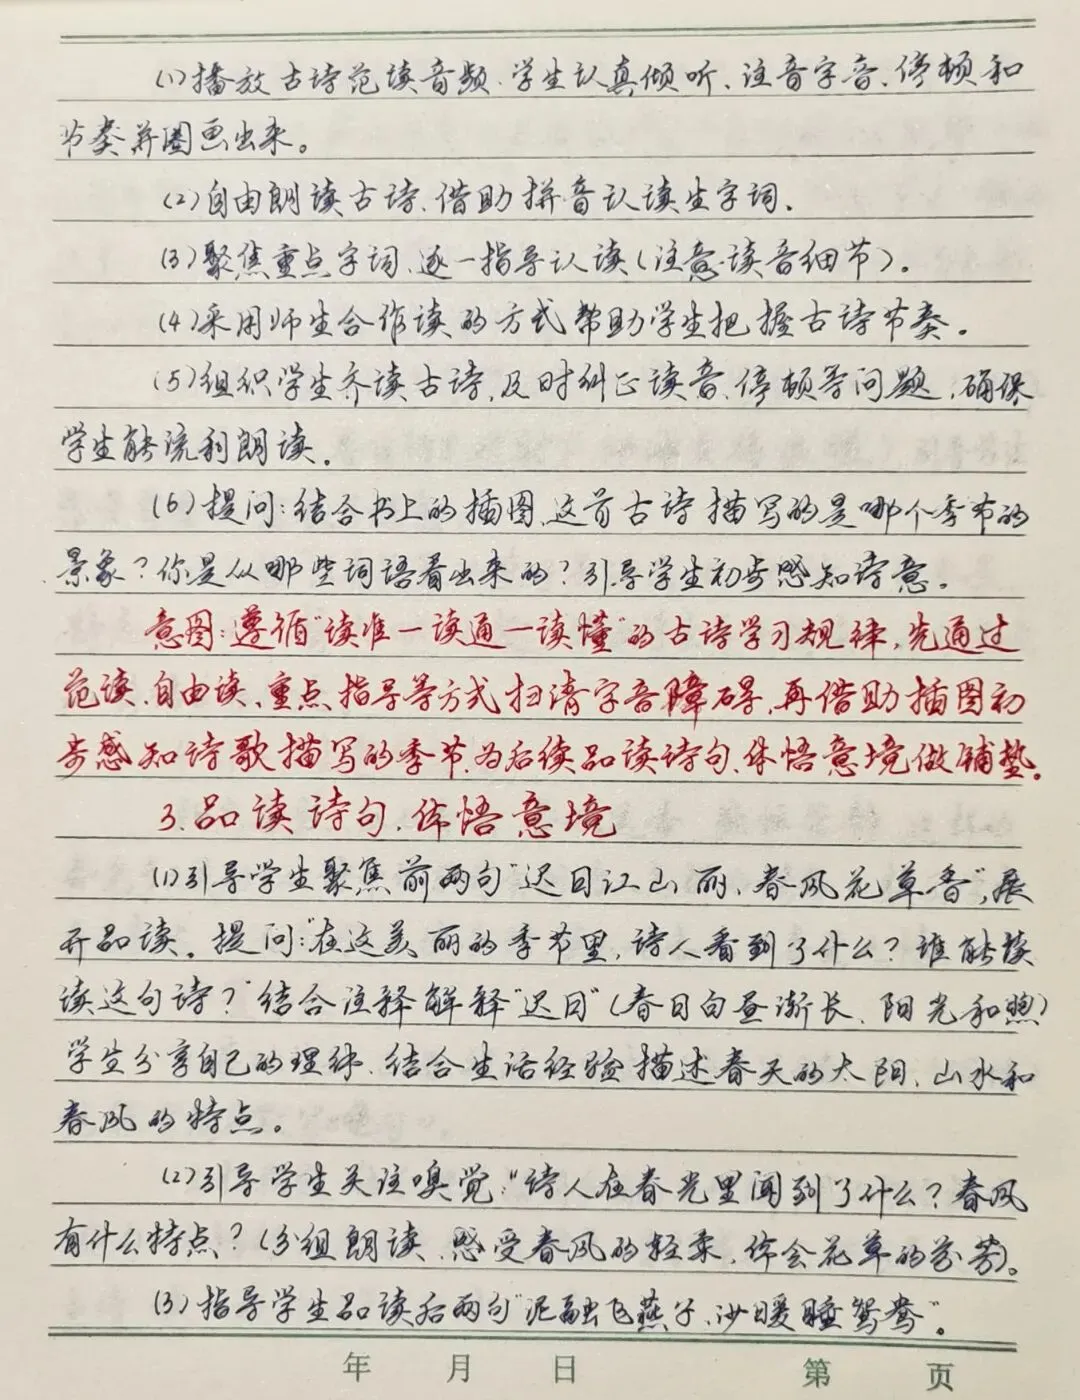 (1)播放古诗范读音频.学生认真倾听、注音字音、停顿和
节奏并圈画出来。
(2)自由朗读古诗、借助拼音认读生字词、
(3)聚焦重点字词、逐一指导认读(注意读音细节)。
(4)采用师生合作读的方式帮助学生把握古诗节奏。
(5)组织学生齐读古诗,及时纠正读音、停顿等问题,确保
学生能流利朗读、
(6)提问:结合书上的插图、这首古诗描写的是哪个季节的
景象?你是从哪些词语看出来的?引导学生初步感知诗意。
意图:遵循"读准一读通一读懂"的古诗学习规律,先通过
范读、自由读、重点指导等方式扫清字音障碍,再借助插图初
步感知诗歌描写的季节,为后续品读诗句、体悟意境做铺垫。
3.品读诗句、体悟意境
(1)引导学生聚焦前两句"迟日江山丽、春风花草香",展
开品读。提问:"在这美丽的季节里,诗人看到了什么?谁能读
读这句诗?"结合注释解释"迟日"(春日白昼渐长、阳光和煦)
学生分享自己的理解、结合生活经验描述春天的太阳、山水和
春风的特点。
(2)引导学生关注嗅觉:"诗人在春光里闻到了什么?春风
有什么特点?(分组朗读、感受春风的轻柔,体会花草的芬芳)。
(3)指导学生品读后两句"泥融飞燕子、沙暖睡鸳鸯"。
年 月 日 第 页